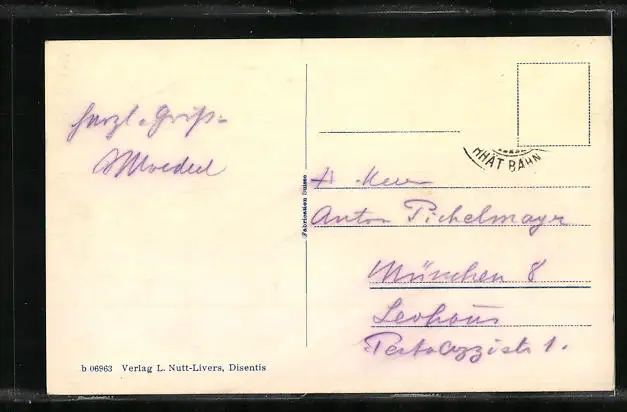 herzl. Grüße
Fabrication Suisse
Anton Pichelmayr
München 8
Leohaus
Pestalozzistr 1.
b 06963 Verlag L. Nutt-Livers, Disentis